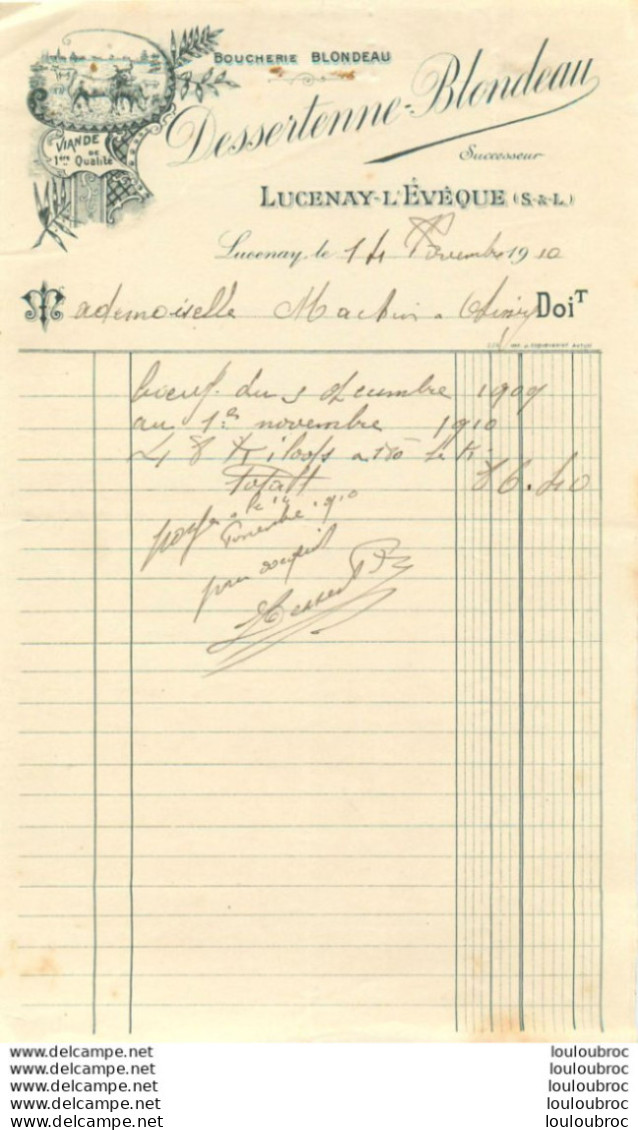 BOUCHERIE BLONDEAU
VIANDE
DE
1ère Qualité
Dessertenne-Blondeau
Successeur
LUCENAY-L'ÉVÊQUE (S.-&-L.)
Lucenay, le 14 Novembre 1910
Mademoiselle Martin a DoiT
boeuf du 3 decembre 1909
au 1er novembre 1910
48 Kiloofs a 180 le K.
Totalt 86.40
paye le 14
Novembre 1910
pour acquit
www.delcampe.net louloubroc
www.delcampe.net louloubroc
www.delcampe.net louloubroc
www.delcampe.net louloubroc
www.delcampe.net louloubroc